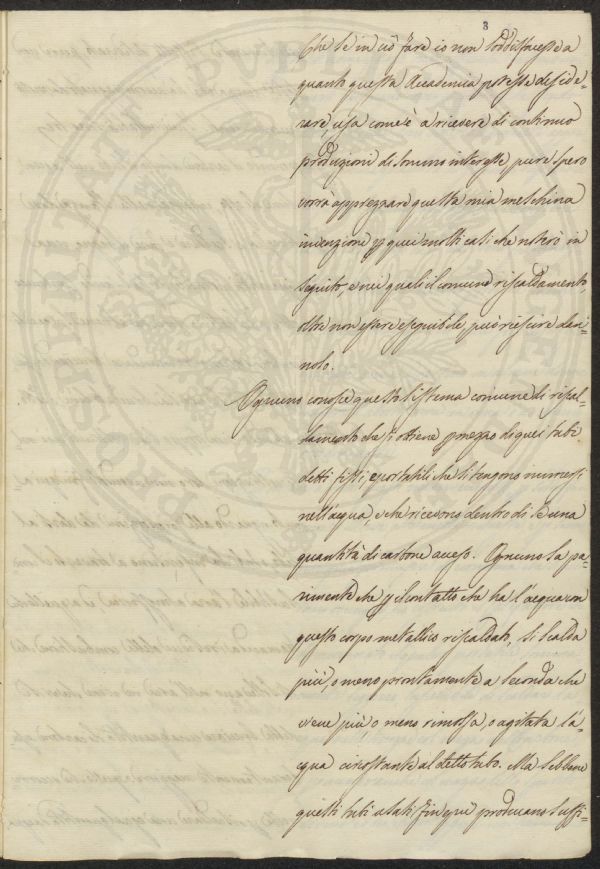 3
Che se in ciò fare io non soddisfacesse a
quanto questa Accademia potesse deside-
rare, usa com'è a ricevere di continuo
produzioni di sommo interesse, pure spero
vorrà apprezzare questa mia meschina
invenzione p quei molti casi che noterò in
seguito, e nei quali il comune riscaldamento,
oltre non essere eseguibile, può riescire dan-
noso.
Ognuno conosce questo sistema comune di riscal-
damento che si ottiene p mezzo di quei tubi
detti fissi, e portatili che si tengono immersi
nell'acqua, e che ricevono dentro di se una
quantità di carbone acceso. Ognuno sa pa-
rimente che p il contatto che ha l'acqua con
questo corpo metallico riscaldato, si scalda
più, o meno prontamente a seconda che
viene più, o meno rimossa, o agitata l'a-
cqua circostante al detto tubo. Ma sebbene
questi tubi usati fin qui producano suffi-